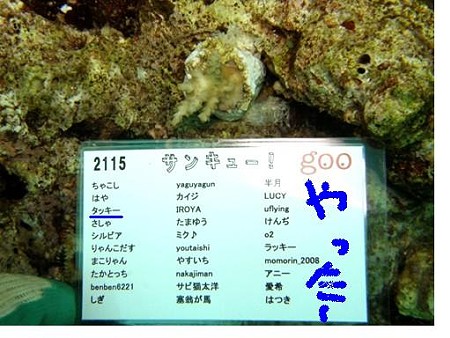 2115 サンキュー! goo
ちゃこし yaguyagun 半月
はや カイジ LUCY
タッキー IROYA uflying
さしゃ たまゆう けんぢ
シルビア ミク♪ o2
りゃんこだす youtaishi ラッキー
まこりゃん やすいち momorin_2008
たかとっち nakajiman アニー
benben6221 サビ猫太洋 愛希
しぎ 塞翁が馬 はつき
やっ